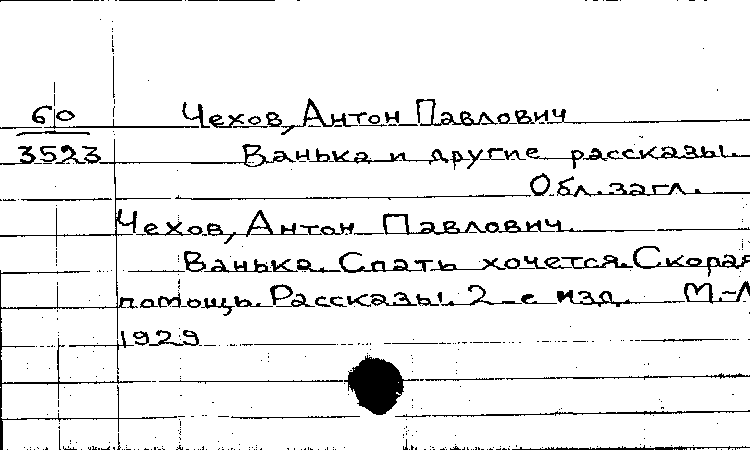 60 Чехов, Антон Павлович
3523 Ванька и другие рассказы.
Обл. загл.
Чехов, Антон Павлович.
Ванька. Спать хочется. Скорая
помощь. Рассказы. 2-е изд. М.-Л
1929